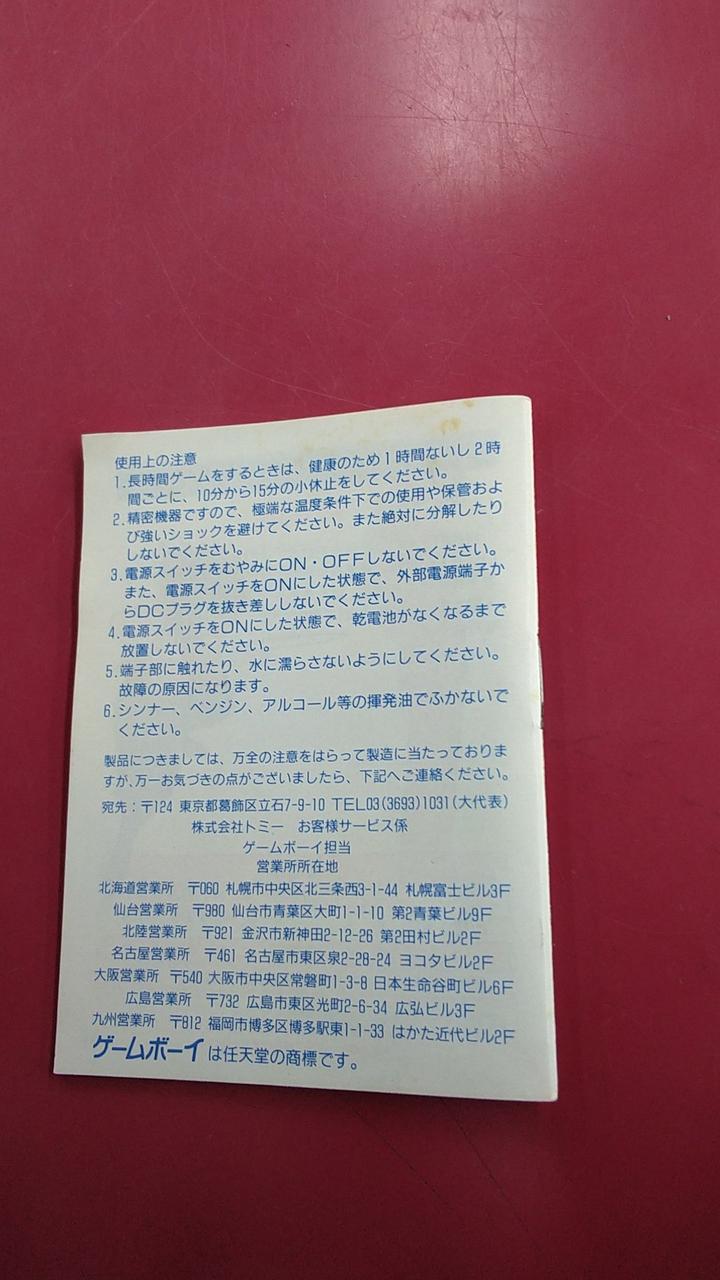 使用上の注意
1.長時間ゲームをするときは、健康のため1時間ないし2時
間ごとに、10分から15分の小休止をしてください。
2.精密機器ですので、極端な温度条件下での使用や保管およ
び強いショックを避けてください。また絶対に分解したり
しないでください。
3.電源スイッチをむやみにON・OFFしないでください。
また、電源スイッチをONにした状態で、外部電源端子か
らDCプラグを抜き差ししないでください。
4.電源スイッチをONにした状態で、乾電池がなくなるまで
放置しないでください。
5.端子部に触れたり、水に濡らさないようにしてください。
故障の原因になります。
6.シンナー、ベンジン、アルコール等の揮発油でふかないで
ください。
製品につきましては、万全の注意をはらって製造に当たっておりま
すが、万一お気づきの点がございましたら、下記へご連絡ください。
宛先:〒124 東京都葛飾区立石7-9-10 TEL03(3693)1031(大代表)
株式会社トミー お客様サービス係
ゲームボーイ担当
営業所所在地
北海道営業所 〒060 札幌市中央区北三条西3-1-44 札幌富士ビル3F
仙台営業所 〒980 仙台市青葉区大町1-1-10 第2青葉ビル9F
北陸営業所 〒921 金沢市新神田2-12-26 第2田村ビル2F
名古屋営業所 〒461 名古屋市東区泉2-28-24 ヨコタビル2F
大阪営業所 〒540 大阪市中央区常磐町1-3-8 日本生命谷町ビル6F
広島営業所 〒732 広島市東区光町2-6-34 広弘ビル3F
九州営業所 〒812 福岡市博多区博多駅東1-1-33 はかた近代ビル2F
ゲームボーイは任天堂の商標です。